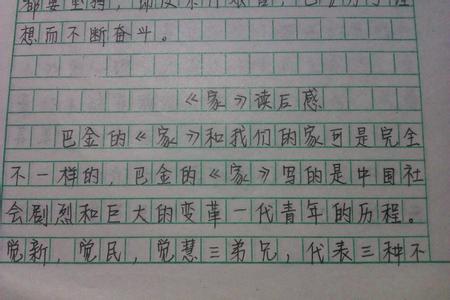 想而不断奋斗。
《家》读后感
巴金的《家》和我们的家可是完全
不一样的，巴金的《家》写的是中国社
会剧烈和巨大的变革一代青年的历程。
觉新，觉民，觉慧三弟兄，代表三种不